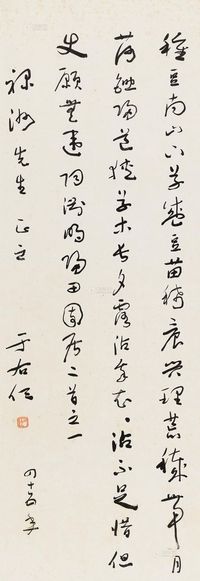 種豆南山下草盛豆苗稀晨興理荒穢帶月
荷鋤歸道狹草木長夕露沾我衣、沾不足惜但
使願無違陶淵明歸田園居二首之一
先生正之
于右任
四十五年